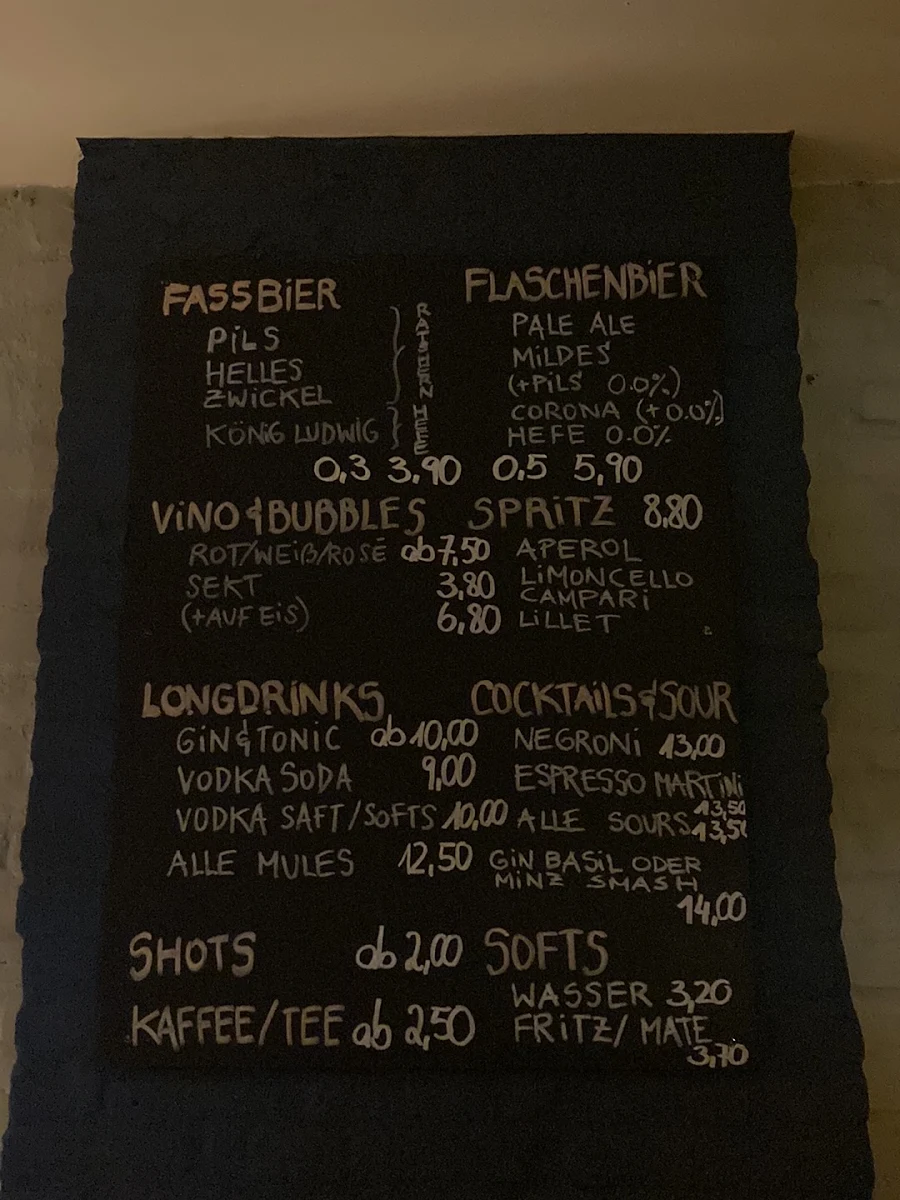 FASSBIER
PILS
HELLES
ZWICKEL
KÖNIG LUDWIG
RATSHERRN
HEFE
FLASCHENBIER
PALE ALE
MILDES
(+PILS 0.0%)
CORONA (+0.0%)
HEFE 0.0%
0,3 3,90 0,5 5,90
VINO & BUBBLES
ROT/WEIß/ROSÉ ab 7,50
SEKT 3,80
(+AUF EIS) 6,80
SPRITZ 8,80
APEROL
LIMONCELLO
CAMPARI
LILLET
LONGDRINKS
GIN & TONIC ab 10,00
VODKA SODA 9,00
VODKA SAFT/SOFTS 10,00
ALLE MULES 12,50
COCKTAILS & SOUR
NEGRONI 13,00
ESPRESSO MARTINI
13,50
ALLE SOURS 13,50
GIN BASIL ODER
MINZ SMASH
14,00
SHOTS ab 2,00
KAFFEE/TEE ab 2,50
SOFTS
WASSER 3,20
FRITZ/MATE
3,70